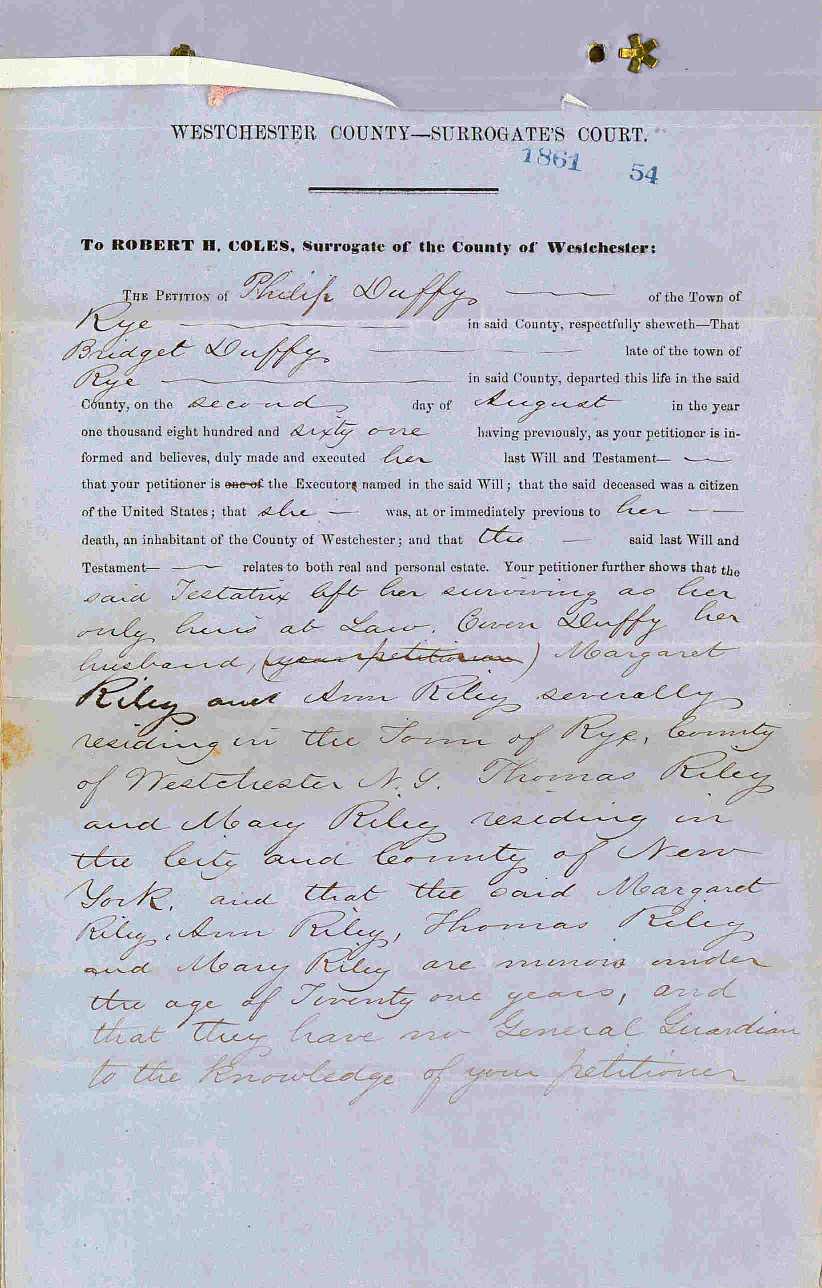 WESTCHESTER COUNTY—SURROGATE'S COURT.
1861 54
To ROBERT H. COLES, Surrogate of the County of Westchester:
THE PETITION of Philip Duffy of the Town of
Rye in said County, respectfully sheweth—That
Bridget Duffy late of the town of
Rye in said County, departed this life in the said
County, on the second day of August in the year
one thousand eight hundred and sixty one having previously, as your petitioner is in-
formed and believes, duly made and executed her last Will and Testament—
that your petitioner is one of the Executors named in the said Will; that the said deceased was a citizen
of the United States; that she was, at or immediately previous to her
death, an inhabitant of the County of Westchester; and that the said last Will and
Testament— relates to both real and personal estate. Your petitioner further shows that the
said Testatrix left her surviving as her
only heirs at Law. Owen Duffy her
husband, (your petitioner) Margaret
Riley and Ann Riley severally
residing in the Town of Rye, County
of Westchester N.Y. Thomas Riley
and Mary Riley residing in
the City and County of New
York, and that the said Margaret
Riley, Ann Riley, Thomas Riley
and Mary Riley are minors under
the age of Twenty one years, and
that they have no General Guardian
to the Knowledge of your petitioner